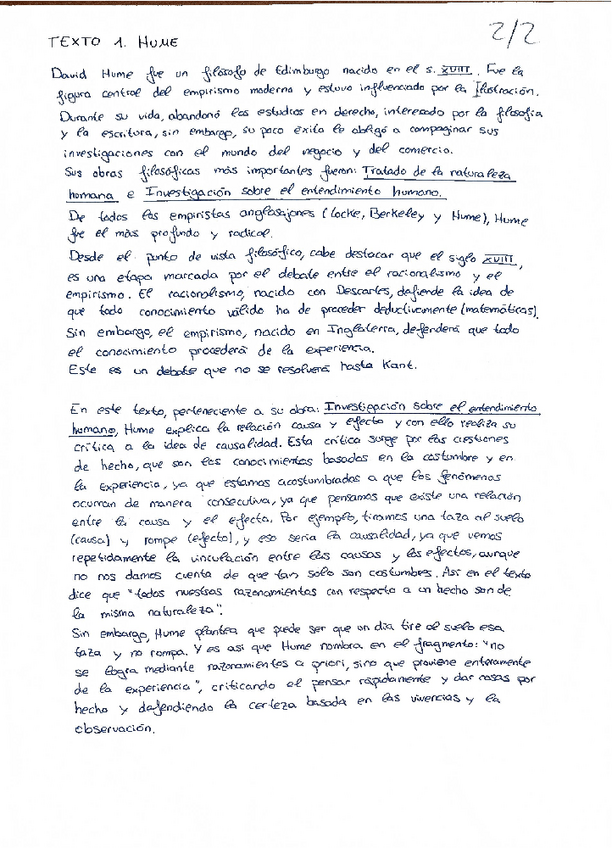 2/2
TEXTO 1. HUME
David Hume fue un filósofo de Edimburgo nacido en el s. XVIII. Fue la
figura central del empirismo moderno y estuvo influenciado por la Ilustración.
Durante su vida, abandonó los estudios en derecho, interesado por la filosofía
y la escritura, sin embargo, su poco éxito lo obligó a compaginar sus
investigaciones con el mundo del negocio y del comercio.
Sus obras filosóficas más importantes fueron: Tratado de la naturaleza
humana e Investigación sobre el entendimiento humano.
De todos los empiristas anglosajones (Locke, Berkeley y Hume), Hume
fue el más profundo y radical.
Desde el punto de vista filosófico, cabe destacar que el siglo XVIII,
es una etapa marcada por el debate entre el racionalismo y el
empirismo. El racionalismo, nacido con Descartes, defiende la idea de
que todo conocimiento válido ha de proceder deductivamente (matemáticas).
Sin embargo, el empirismo, nacido en Inglaterra, defenderá que todo
el conocimiento procederá de la experiencia.
Este es un debate que no se resolverá hasta Kant.
En este texto, perteneciente a su obra: Investigación sobre el entendimiento
humano, Hume explica la relación causa y efecto y con ello realiza su
crítica a la idea de causalidad. Esta crítica surge por las cuestiones
de hecho, que son los conocimientos basados en la costumbre y en
la experiencia, ya que estamos acostumbrados a que los fenómenos
ocurran de manera consecutiva, ya que pensamos que existe una relación
entre la causa y el efecto. Por ejemplo, tiramos una taza al suelo
(causa) y rompe (efecto), y eso sería la causalidad, ya que vemos
repetidamente la vinculación entre las causas y los efectos, aunque
no nos damos cuenta de que tan solo son costumbres. Así en el texto
dice que "todos nuestros razonamientos con respecto a un hecho son de
la misma naturaleza".
Sin embargo, Hume plantea que puede ser que un día tire al suelo esa
taza y no rompa. Y es así que Hume nombra en el fragmento: "no
se logra mediante razonamientos a priori, sino que proviene enteramente
de la experiencia", criticando el pensar rápidamente y dar cosas por
hecho y defendiendo la certeza basada en las vivencias y la
observación.